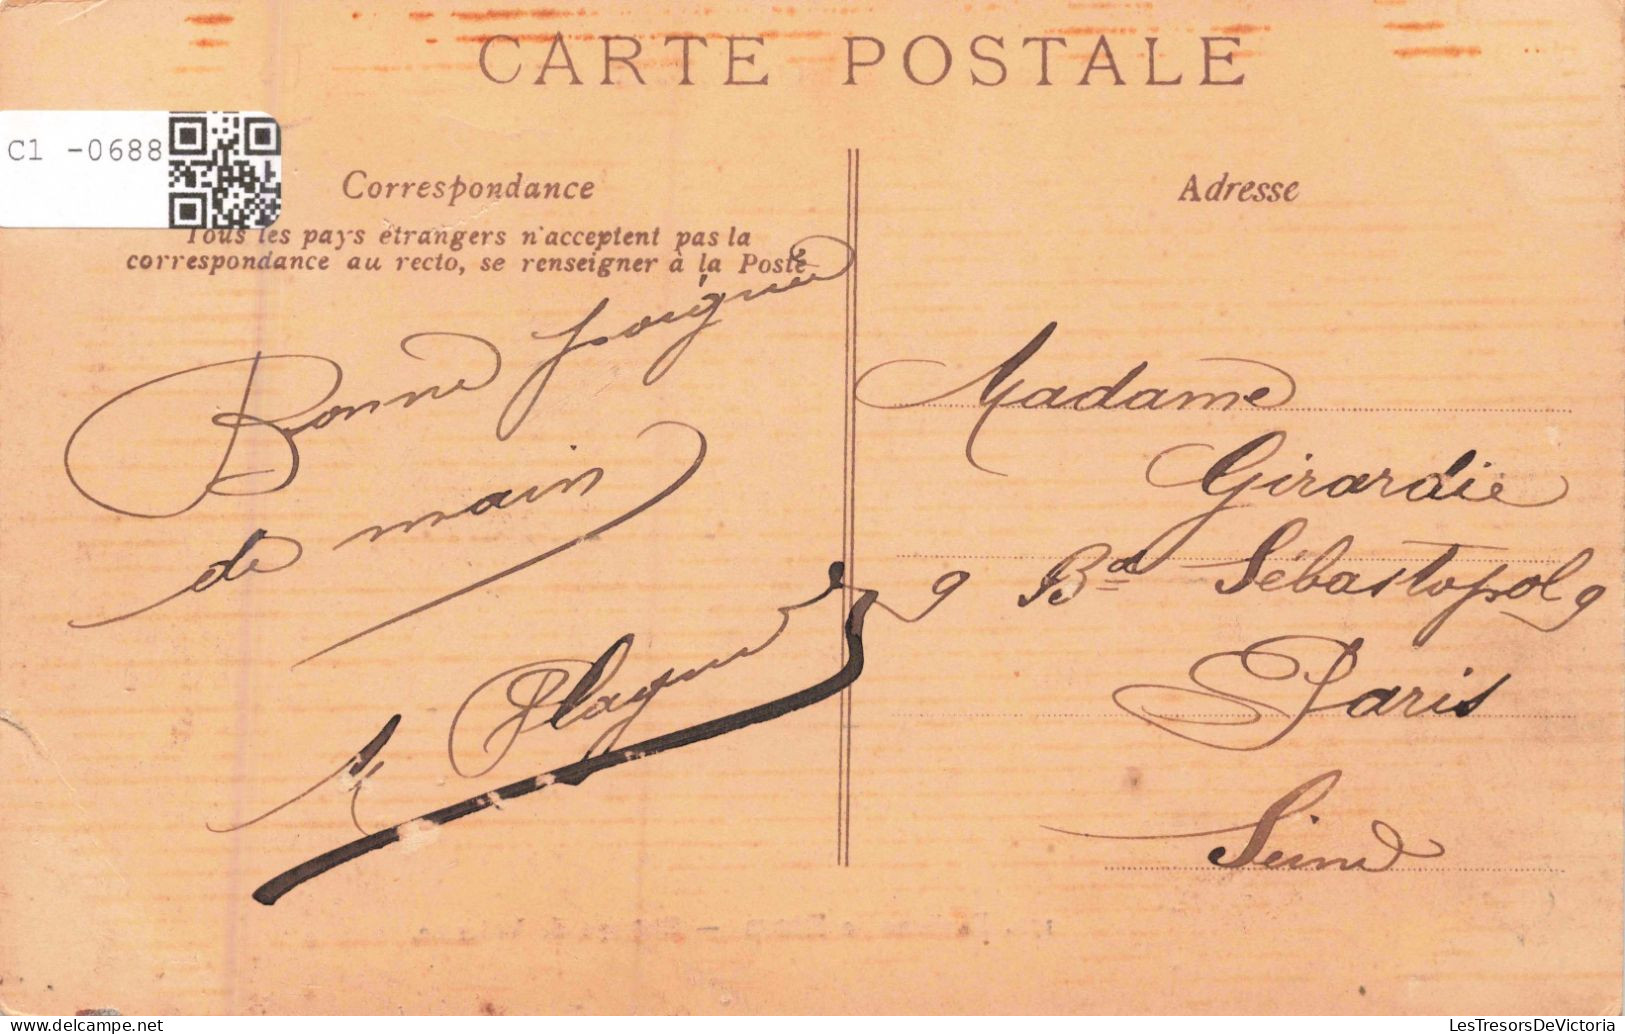 CARTE POSTALE
C1 -0688
Correspondance
Tous les pays étrangers n'acceptent pas la
correspondance au recto, se renseigner à la Poste
Bonne poignée
de main
Plagne
Adresse
Madame
Girardie
9 Bd Sébastopol 9
Paris
Seine
LesTresorsDeVictoria
delcampe.net